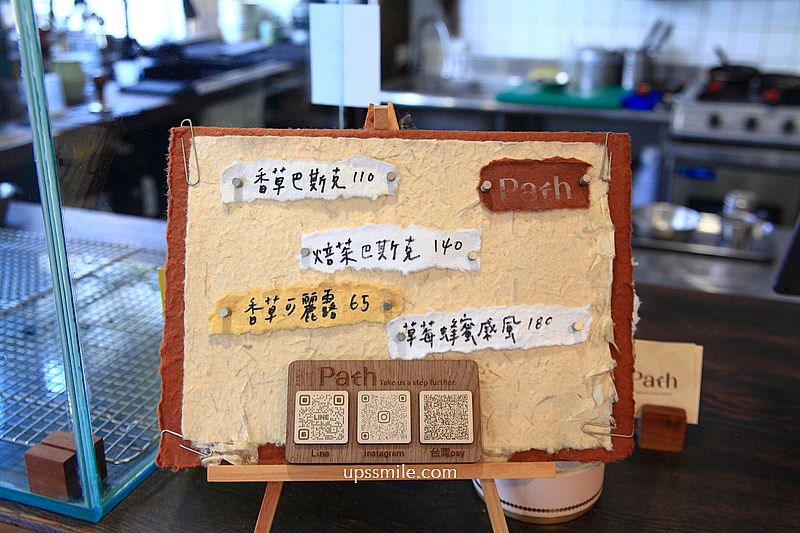 香草巴斯克 110
Path
焙茶巴斯克 140
香草可麗露 65
草莓蜂蜜戚風 180
Path Take us a step further.
LINE
Line
Instagram
台灣pay
Path
upssmile.com